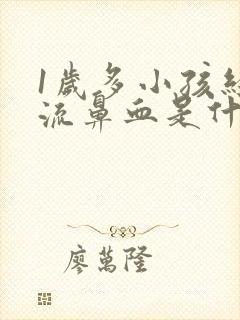 1歲多小孩經
流鼻血是什
廖萬隆